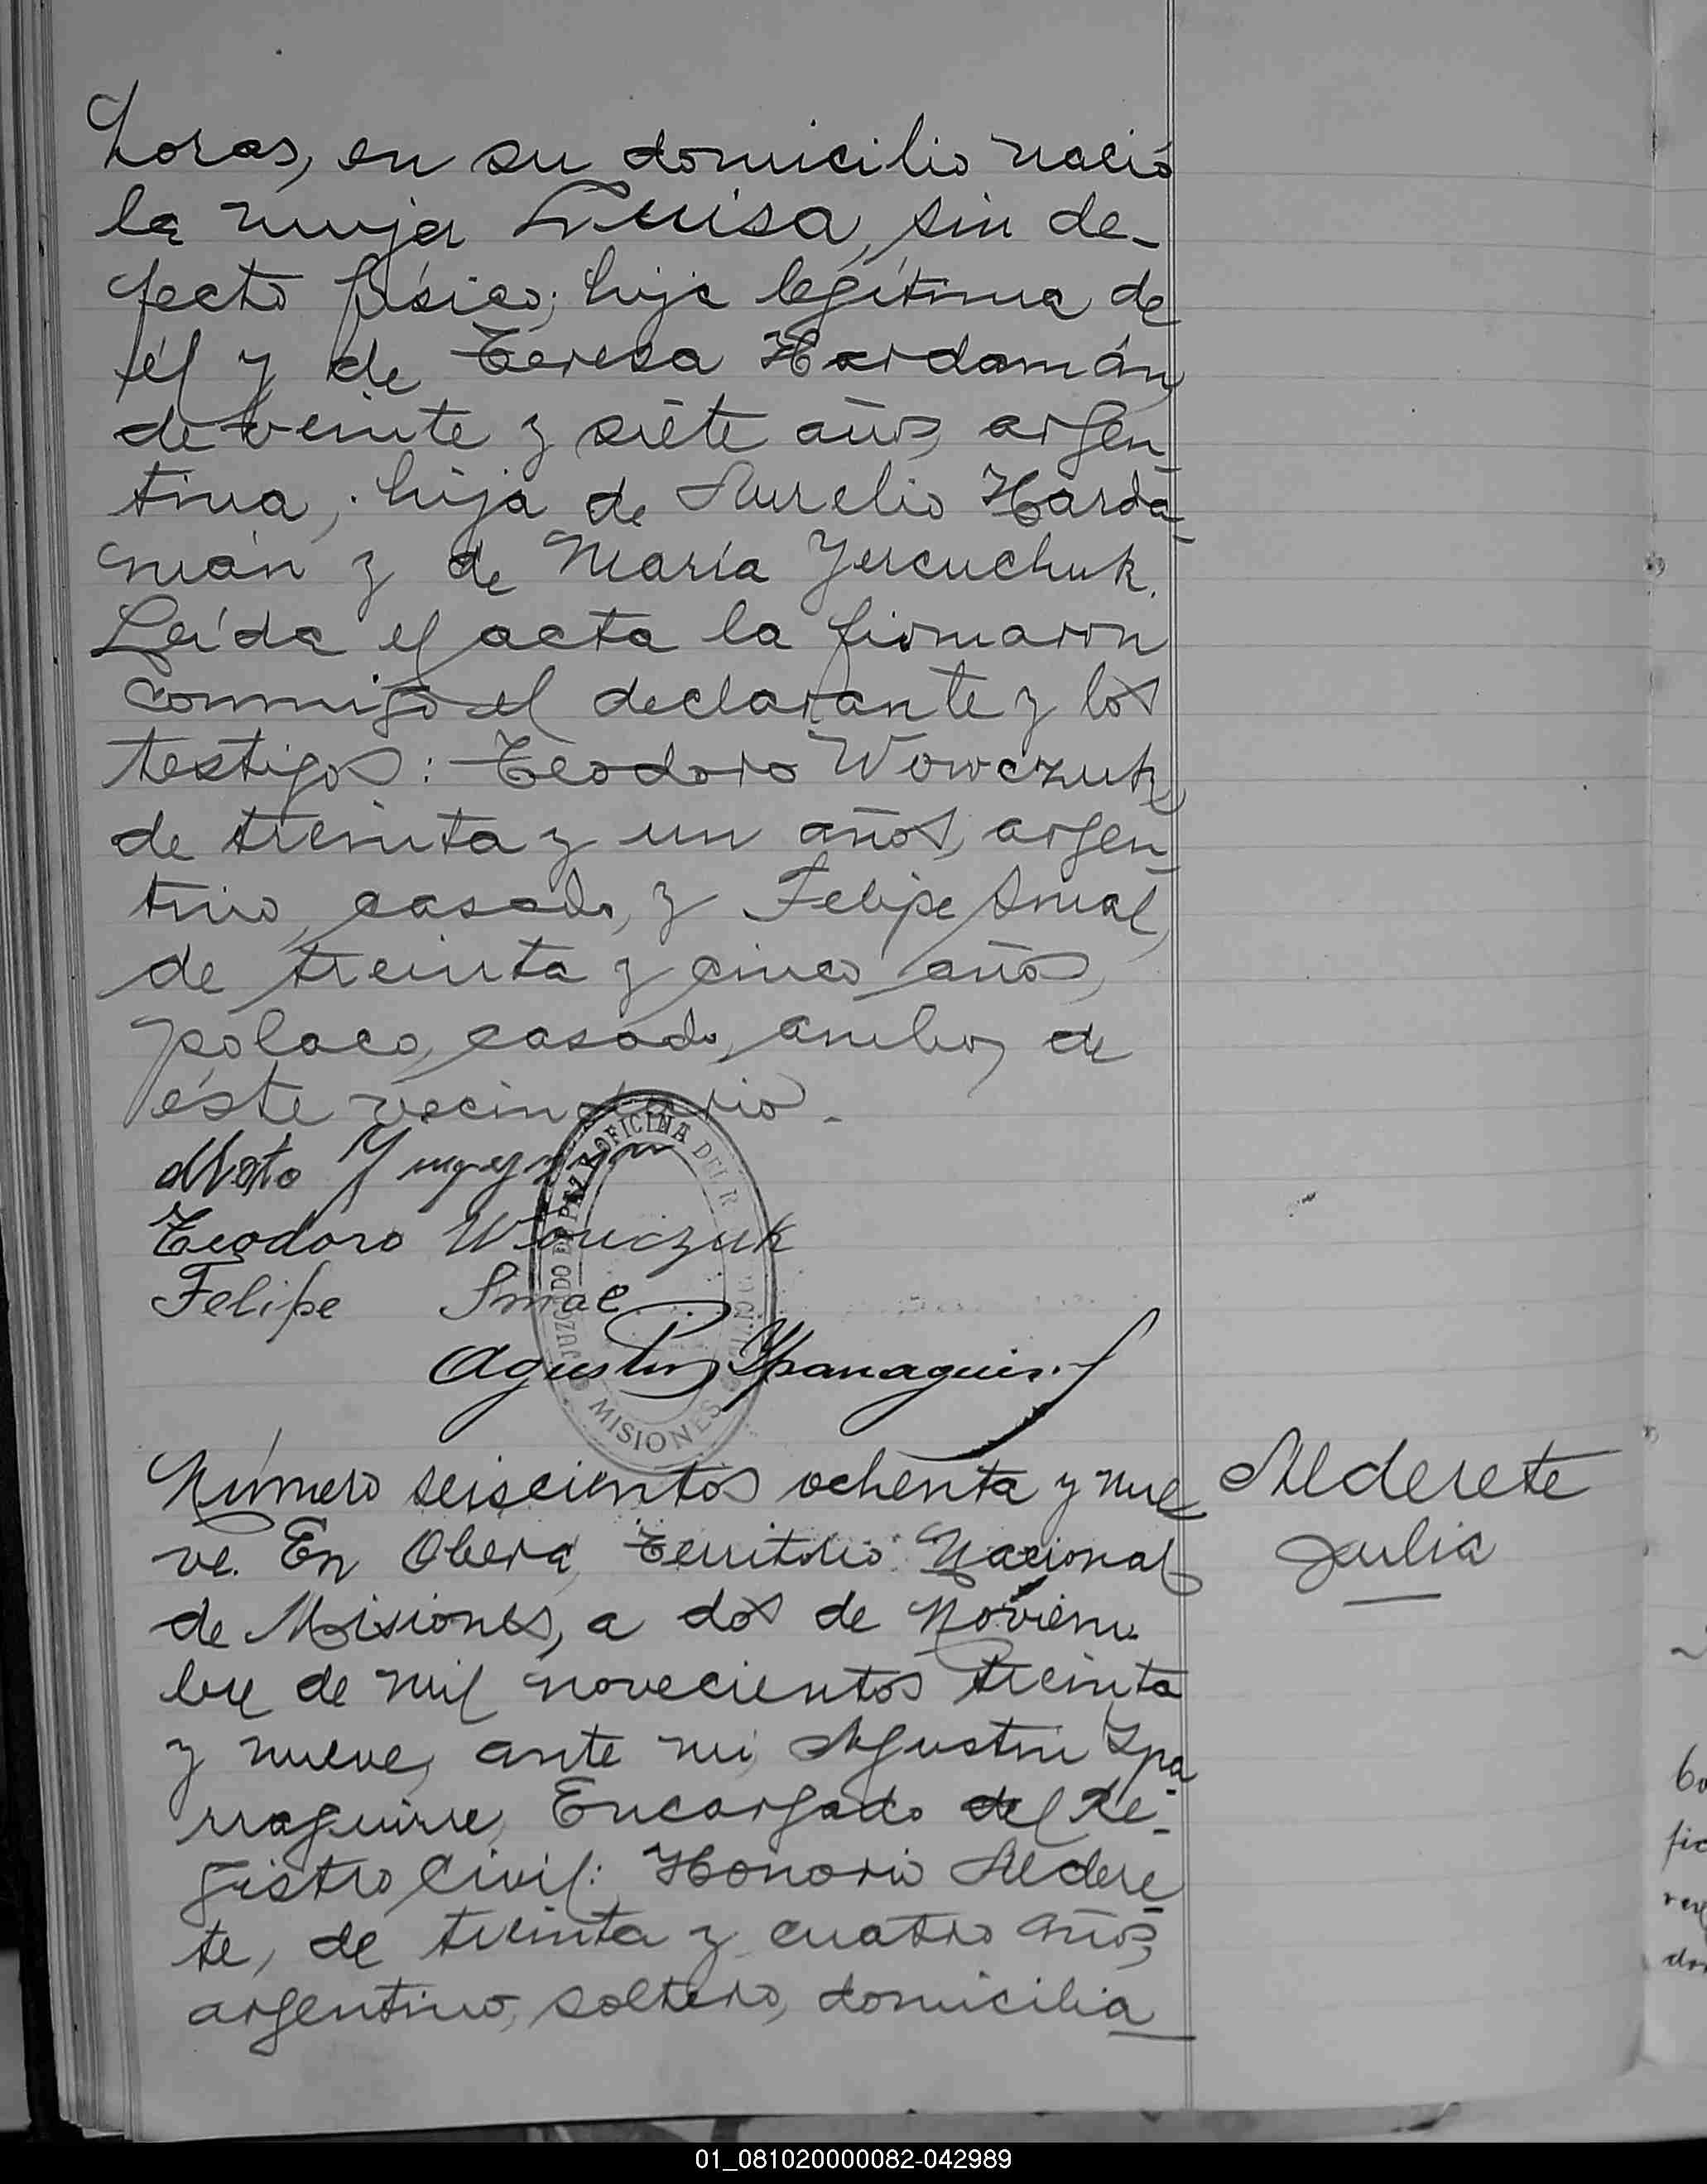 horas, en su domicilio nació
la mujer Luisa, sin de-
fecto físico; hija legítima de
él y de Teresa Hardamán,
de veinte y siete años, argen-
tina; hija de Aurelio Harda-
mán y de María Jercuchuk.
Leída el acta la firmaron
conmigo el declarante y los
testigos: Teodoro Wowczuk,
de treinta y un años, argen-
tino, casado, y Felipe Smal,
de treinta y cinco años,
polaco, casado, ambos de
éste vecindario.-
Teodoro Wowczuk
Felipe Smal
Agustin Yparraguirre
JUZGADO DE PAZ Y OFICINA DEL R CIVIL
MISIONES
Número seiscientos ochenta y nue
ve. En Oberá, Territorio Nacional
de Misiones, a dos de Noviem
bre de mil novecientos treinta
y nueve, ante mi, Agustín Ypa-
rraguirre, Encargado del Re-
gistro Civil: Honorio Aldere-
te, de treinta y cuatro años,
argentino, soltero, domicilia
Alderete
Julia
01_081020000082-042989